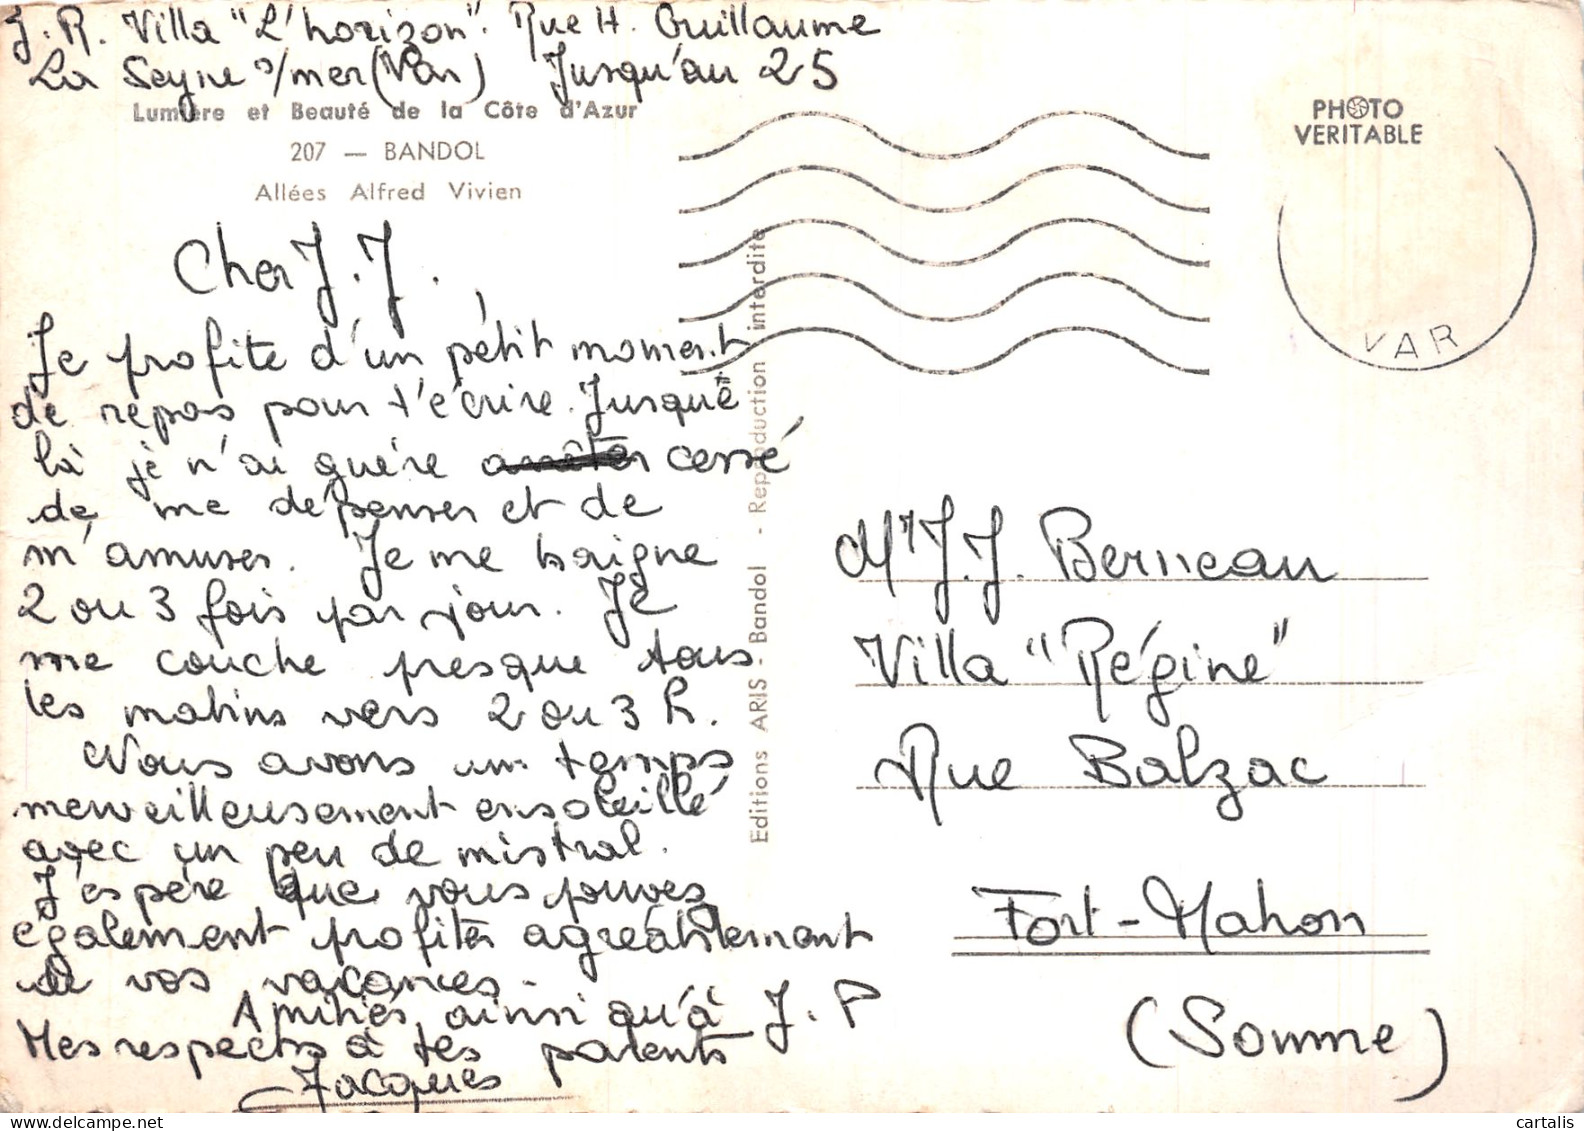 J. R. Villa "L'horizon". Rue H. Guillaume
La Seyne s/mer (Var) Jusqu'au 25
Lumière et Beauté de la Côte d'Azur
207 — BANDOL
Allées Alfred Vivien
Cher J. J.
Je profite d'un petit moment
de repos pour t'écrire. Jusque
là je n'ai guère arrêter cessé
de me dépenser et de
m'amuser. Je me baigne
2 ou 3 fois par jour. Je
me couche presque tous
les matins vers 2 ou 3 h.
Nous avons un temps
merveilleusement ensoleillé
avec un peu de mistral.
J'espère que vous pouvez
également profiter agréablement
de vos vacances.
Amitiés, ainsi qu'à J. P
Mes respects à tes parents
Jacques
Editions ARIS - Bandol - Reproduction interdite
PHOTO
VERITABLE
VAR
Mr J. J. Berneau
Villa "Régine"
Rue Balzac
Fort-Mahon
(Somme)
cartalis